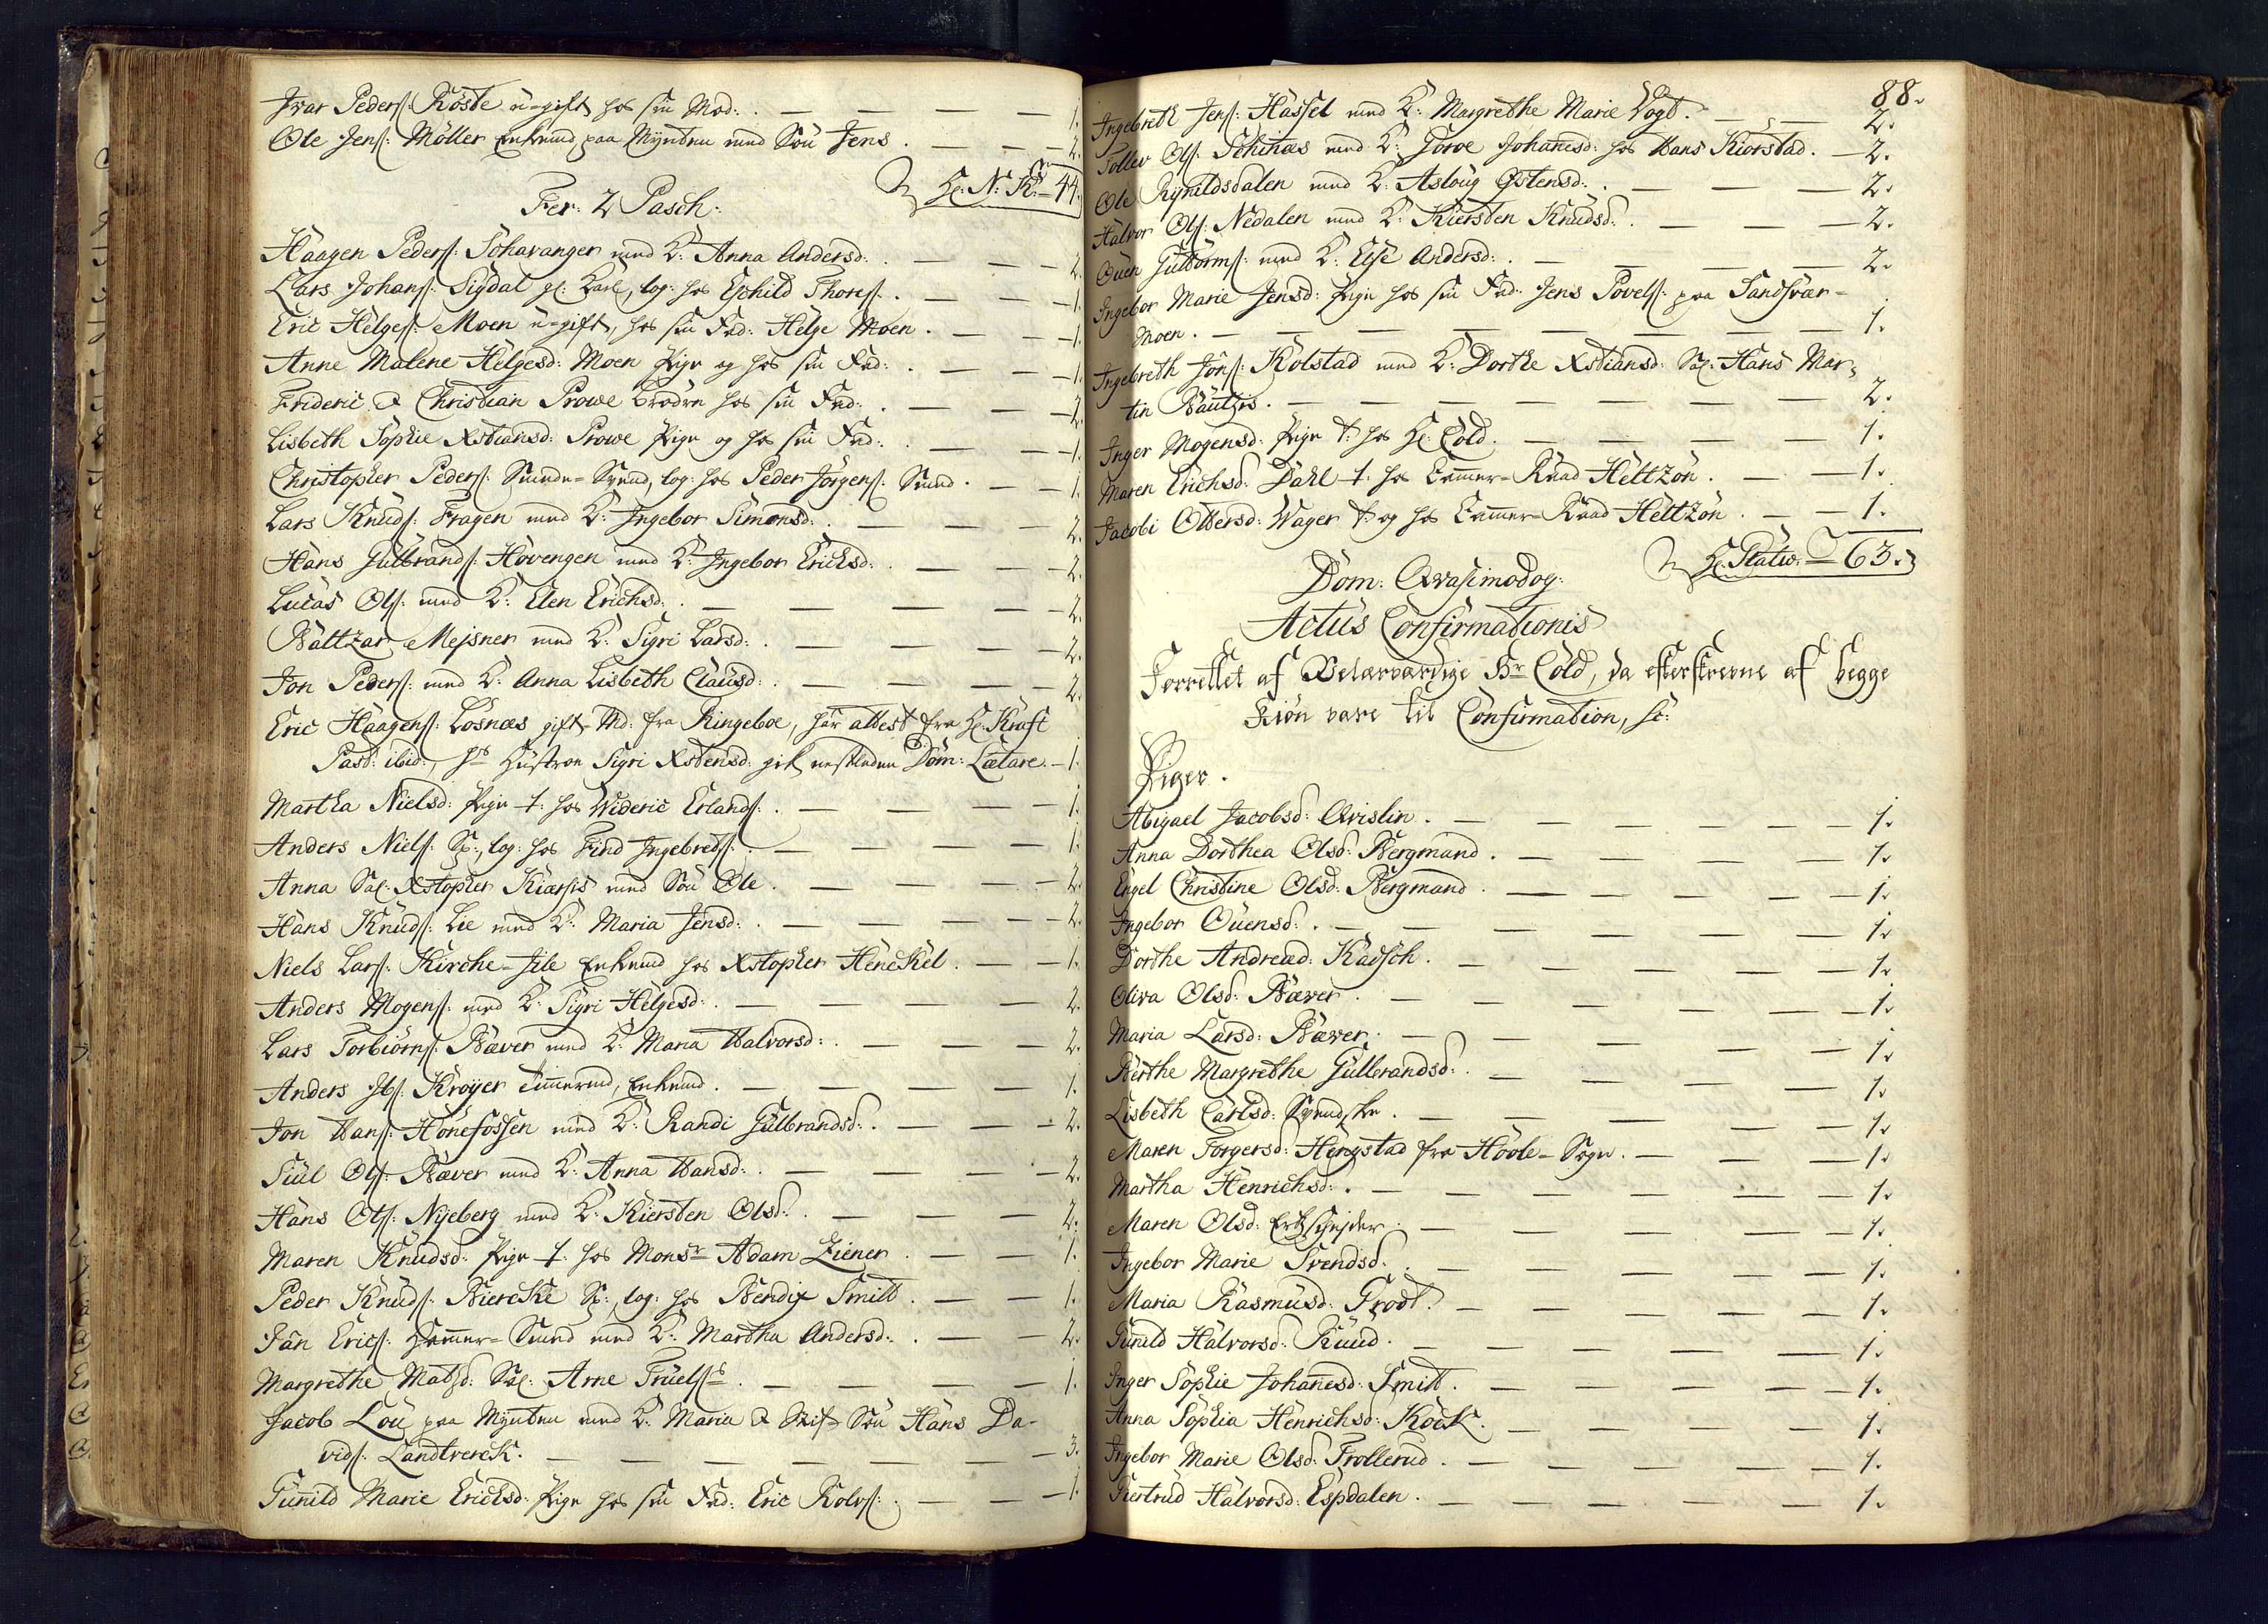 Ivar Peders: Röste u-gift hos sin Mod: . — — — — 1.
Ole Jens: Möller Enkemd paa Mynten med Sön Jens . — — 2.
Hr: N: K: — 44.
Fer: 2 Pasch:
Haagen Peders: Schavanger med K: Anna Andersd: . — — — 2.
Lars Johans: Sigdal gl: Karl, log: hos Eskild Thores: . — — — 1.
Eric Helges: Moen u-gift, hos sin Fad: Helge Moen . — — — 1.
Anne Malene Helgesd: Moen Pige og hos sin Fad: . — — — 1.
Frideric & Christian Prowe brödre hos sin Fad: . — — — 2.
Lisbeth Sophie Xstiansd: Prowe Pige og hos sin Fad: . — — 1.
Christopher Peders: Smede-Svend, log: hos Peder Jörgens: Smed . — — 1.
Lars Knuds: Fragen med K: Ingebor Simonsd: . — — — 2.
Hans Gulbrands: Hovengen med K: Ingebor Erichsd: . — — — 2.
Lucas Ols: med K: Elen Erichsd: . — — — — 2.
Baltzar Mejsner med K: Sigri Larsd: . — — — — 2.
Jon Peders: med K: Anna Lisbeth Clausd: . — — — — 2.
Eric Haagens: Losnæs gift Md: fra Ringeboe, har attest fra Hr: Kraft
Past: ibid:, hs Hustroe Sigri Xstensd: gik nestleden Dom: Lætare. — 1.
Martha Nielsd: Pige t: hos Wideric Erlands: . — — — — 1.
Anders Niels: Sp:, log: hos Find Ingebrets: . — — — — 1.
Anna Sal: Xstopher Kiærsis med Sön Ole . — — — — 2.
Hans Knuds: Lie med K: Maria Jensd: . — — — — 2.
Niels Lars: Kirche-Jile Enkemd hos Xstopher Henckel . — — 1.
Anders Mogens: med K: Sigri Helgesd: . — — — — 2.
Lars Torbiörns: Bæver med K: Maria Halvorsd: . — — — 2.
Anders Ibs: Kroyer Timermd, Enkemd . — — — — 1.
Jon Hans: Hönefossen med K: Randi Gulbrandsd: . — — — 2.
Siul Ols: Bæver med K: Anna Hansd: . — — — — 2.
Hans Ols: Nyeberg med K: Kiersten Olsd: . — — — 2.
Maren Knudsd: Pige t: hos Monsr Adam Ziener . — — 1.
Peder Knuds: Biercke Sp: log: hos Bendix Smitt . — — 1.
Jan Erics: Hammer-Smed med K: Martha Andersd: . — — 2.
Margrethe Matsd: Sal: Arne Truels: . — — — — 1.
Jacob Lou paa Mynten med K: Maria & Stif Sön Hans Da-
vids: Landtverck . — — — — — — 3.
Gunild Marie Erichsd: Pige hos sin Fad: Eric Rolvs: . — — 1.
88.
Ingebreth Jens: Hassel med K: Margrethe Marie Vogt. — — 2.
Tollev Ols: Schinæs med K: Torve Johanesd: hos Hans Kiorstad. — 2.
Ole Rynildsdalen med K: Asloug Ostensd: . — — — 2.
Halvor Ols: Nedalen med K: Kiersten Knudsd: . — — — 2.
Ouen Guttorms: med K: Else Andersd: . — — — — 2.
Ingebor Marie Jensd: Pige hos sin Fad: Jens Povels: paa Sandsvær-
Moen . — — — — — — — — 1.
Ingebreth Jons: Kolstad med K: Dorthe Xstiansd: Sal: Hans Mar-
tin Bautzis . — — — — — — — 2.
Inger Mogensd: Pige t: hos Hr: Cold . — — — — 1.
Maren Erichsd: Dahl t: hos Cammer-Raad Heltzon . — — 1.
Jacobi Ottersd: Wager t: og hos Cammer-Raad Heltzon . — — 1.
— 63.
Dom: Qvasimodog:
Actus Confirmationis
Forrettet af Velærværdige Hr Cold, da efterskrevne af begge
Kiön vare til Confirmation, sc:
Piger .
Abigael Jacobsd: Qvislin . — — — — — — 1.
Anna Dorthea Olsd: Bergmand . — — — — — 1.
Engel Christine Olsd: Bergmand . — — — — — 1.
Ingebor Ouensd: . — — — — — — 1.
Dorthe Andread: Kadsch . — — — — — — 1.
Oliva Olsd: Bæver . — — — — — — 1.
Maria Larsd: Bæver . — — — — — — 1.
Berthe Margrethe Gulbrandsd: . — — — — — 1.
Lisbeth Carlsd: Svendske . — — — — — — 1.
Maren Torgersd: Hengstad fra Hovle-Sogn . — — — 1.
Martha Henrichsd: . — — — — — — 1.
Maren Olsd: Ertzschejder . — — — — — 1.
Ingebor Marie Svendsd: . — — — — — 1.
Maria Rasmusd: Trodt . — — — — — 1.
Gunild Halvorsd: Ruud . — — — — — — 1.
Inger Sophie Johanesd: Smitt . — — — — — 1.
Anna Sophia Henrichsd: Kock . — — — — — 1.
Ingebor Marie Olsd: Trollerud . — — — — — 1.
Giertrud Halvorsd: Espdalen . — — — — — 1.